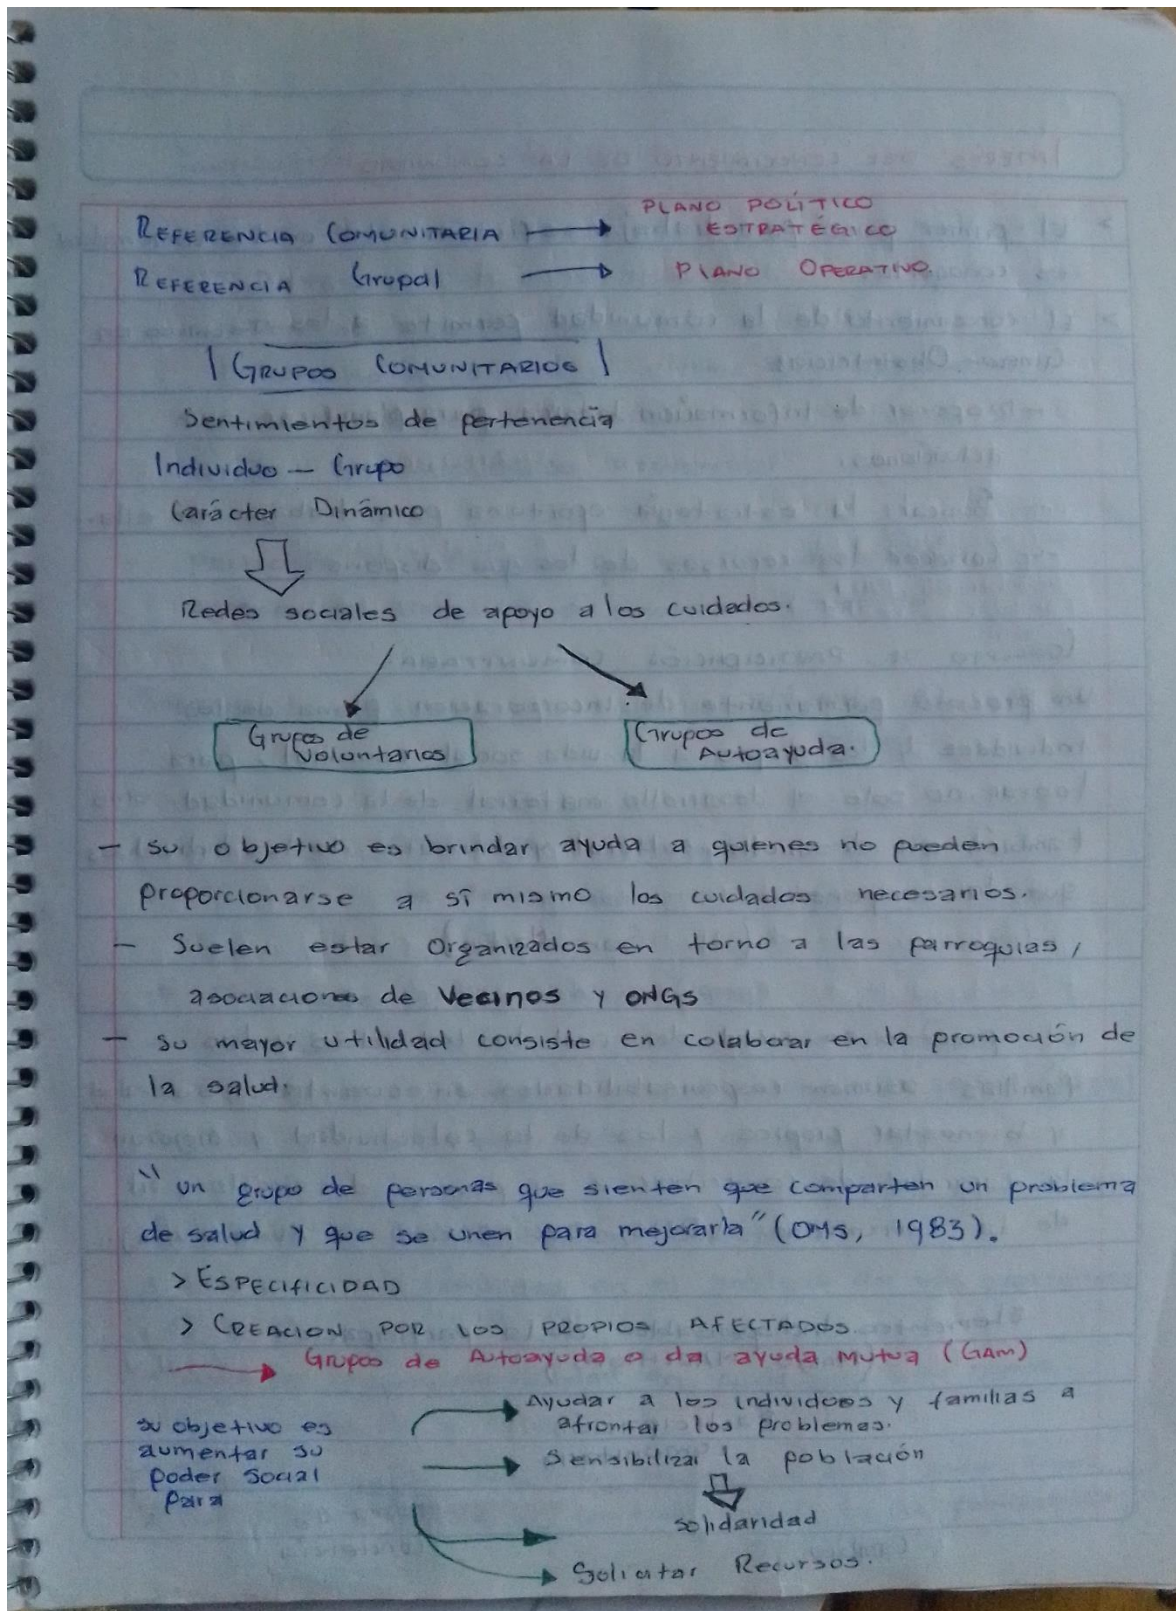 REFERENCIA COMUNITARIA → PLANO POLÍTICO ESTRATÉGICO
REFERENCIA Grupal → PLANO OPERATIVO.
GRUPOS COMUNITARIOS
Sentimientos de pertenencia
Individuo — Grupo
Carácter Dinámico
Redes sociales de apoyo a los cuidados.
Grupos de Voluntarios
Grupos de Autoayuda.
- su objetivo es brindar ayuda a quienes no pueden
proporcionarse a sí mismo los cuidados necesarios.
- Suelen estar Organizados en torno a las parroquias,
asociaciones de Vecinos y ONGs
- su mayor utilidad consiste en colaborar en la promoción de
la salud.
"un grupo de personas que sienten que comparten un problema
de salud y que se unen para mejorarla" (OMS, 1983).
> ESPECIFICIDAD
> CREACION POR LOS PROPIOS AFECTADOS.
→ Grupos de Autoayuda o da ayuda Mutua (GAM)
su objetivo es
aumentar su
poder Social
para
Ayudar a los individuos y familias a
afrontar los problemas.
Sensibilizar la población
solidaridad
Solicitar Recursos.